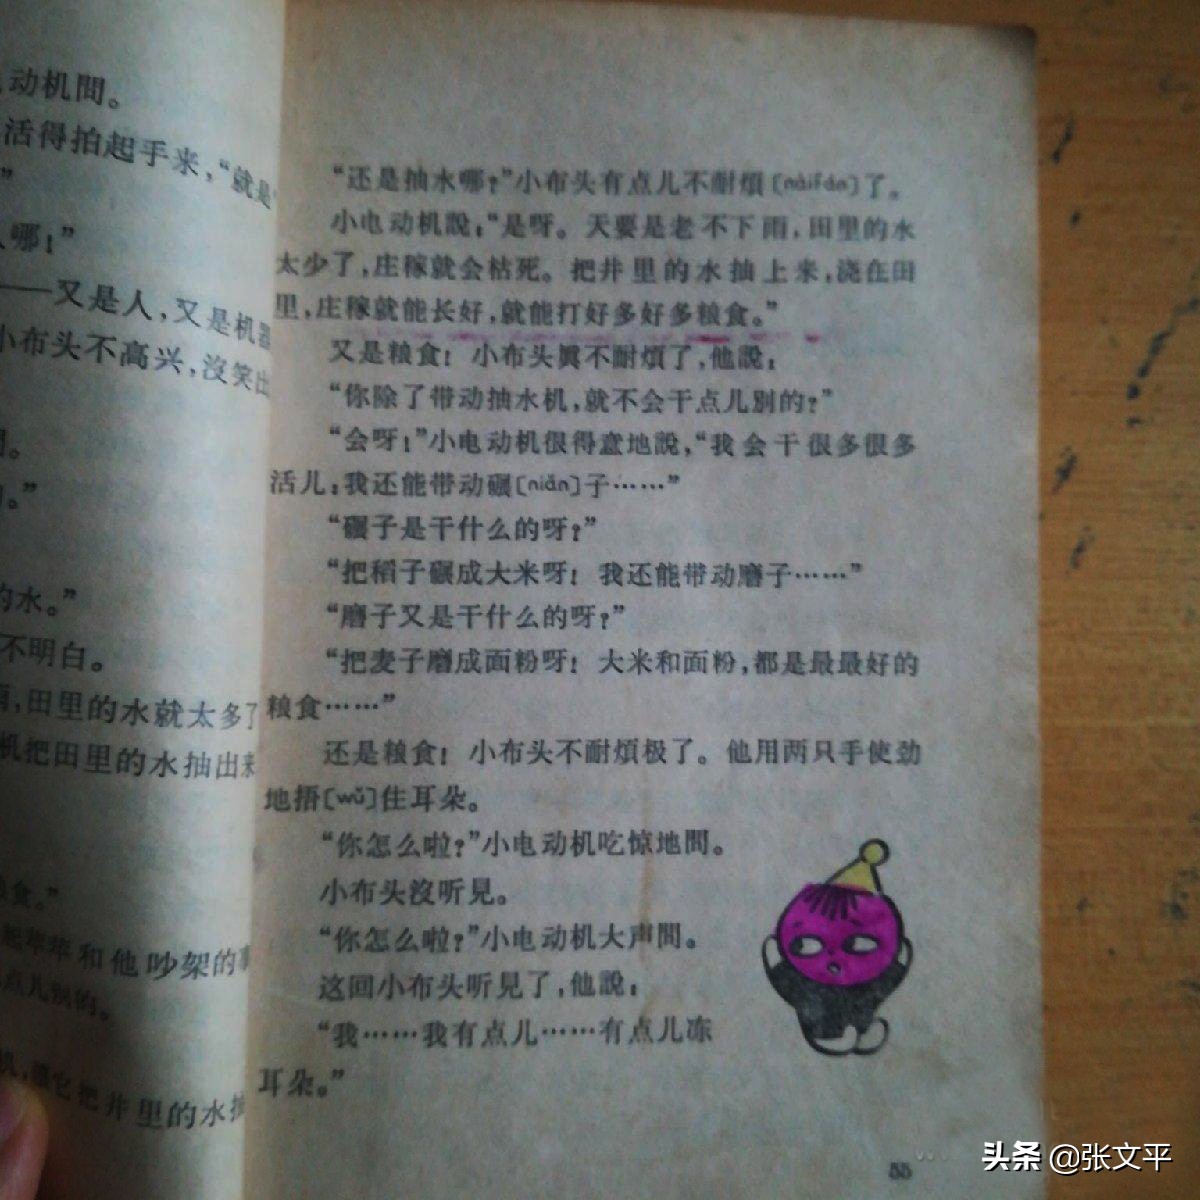 动机問。
活得拍起手来，“就是
”
哪！”
——又是人，又是机器
小布头不高兴，沒笑出
。”
的水。”
不明白。
雨，田里的水就太多了
机把田里的水抽出来
粮食。”
和他吵架的事
点儿别的。
机，把井里的水抽
“还是抽水哪？”小布头有点儿不耐煩〔nàifán〕了。
小电动机說：“是呀。天要是老不下雨，田里的水
太少了，庄稼就会枯死。把井里的水抽上来，浇在田
里，庄稼就能长好，就能打好多好多粮食。”
又是粮食！小布头眞不耐煩了，他說：
“你除了带动抽水机，就不会干点儿别的？”
“会呀！”小电动机很得意地說，“我会干很多很多
活儿；我还能带动碾〔niǎn〕子……”
“碾子是干什么的呀？”
“把稻子碾成大米呀！我还能带动磨子……”
“磨子又是干什么的呀？”
“把麦子磨成面粉呀！大米和面粉，都是最最好的
粮食……”
还是粮食！小布头不耐煩极了。他用两只手使劲
地捂〔wǔ〕住耳朵。
“你怎么啦？”小电动机吃惊地問。
小布头沒听見。
“你怎么啦？”小电动机大声問。
这回小布头听見了，他說：
“我……我有点儿……有点儿冻
耳朵。”
55
头条 @张文平